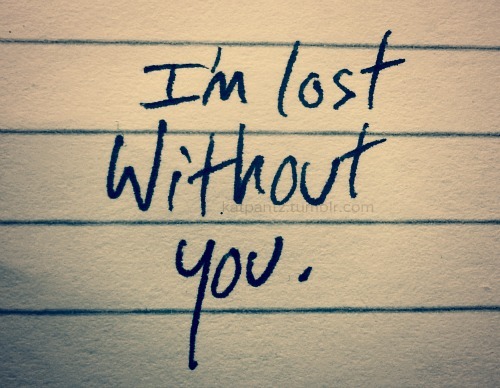 I'm lost
Without
katpantz.tumblr.com
you.